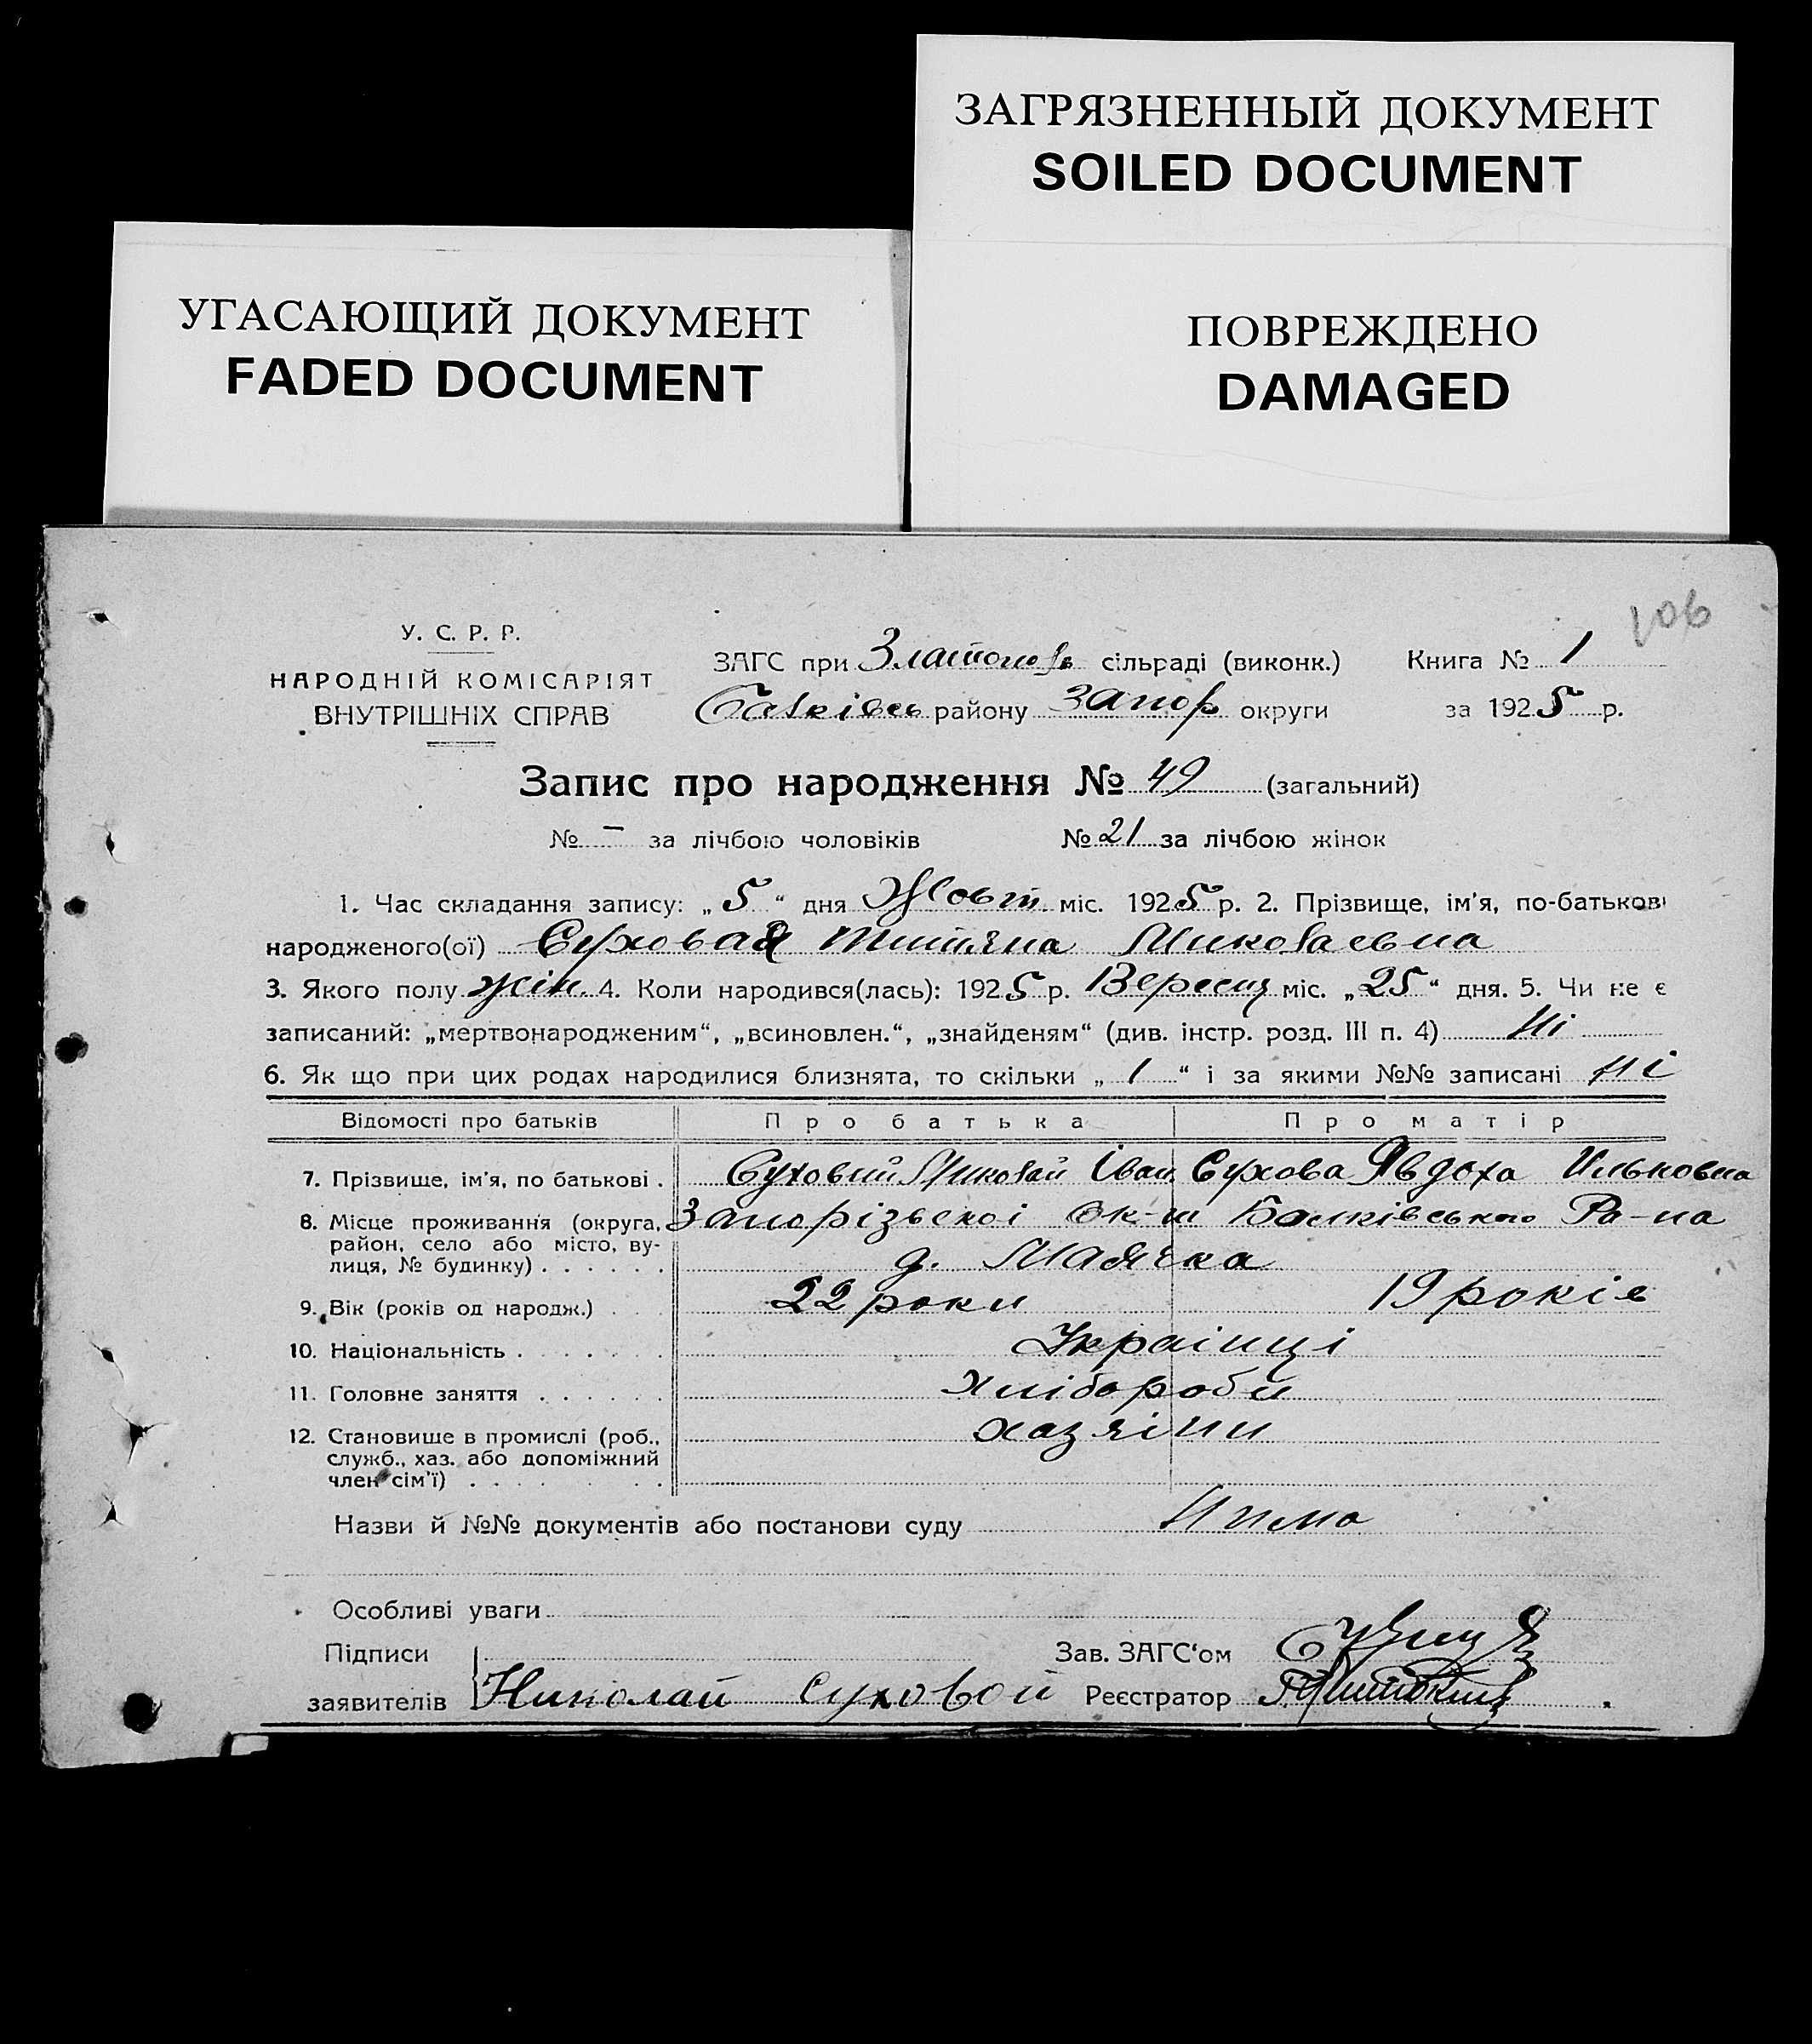 ЗАГРЯЗНЕННЫЙ ДОКУМЕНТ
SOILED DOCUMENT
УГАСАЮЩИЙ ДОКУМЕНТ
FADED DOCUMENT
ПОВРЕЖДЕНО
DAMAGED
106
У. С. Р. Р.
НАРОДНІЙ КОМІСАРІЯТ
ВНУТРІШНІХ СПРАВ
ЗАГС при Златопол сільраді (виконк.) Книга № 1
Балківсь району Запор округи за 1925 р.
Запис про народження № 49 (загальний)
№ – за лічбою чоловіків № 21 за лічбою жінок
1. Час складання запису: „5“ дня Жовт. міс. 1925 р. 2. Прізвище, ім'я, по-батькові
народженого(ої) Суховая Титяна Миколаевна
3. Якого полу жін. 4. Коли народився(лась): 1925 р. Вересня міс. „25“ дня. 5. Чи не є
записаний: „мертвонародженим“, „всиновлен.“, „знайденям“ (див. інстр. розд. III п. 4) Ні
6. Як що при цих родах народилися близнята, то скільки „1“ і за якими №№ записані ні
Відомості про батьків Про батька Про матір
7. Прізвище, ім'я, по батькові . Суховий Миколай Іван. Сухова Явдоха Ильковна
8. Місце проживання (округа, Запорізьскоі Ок-и Балківського Ра-на
район, село або місто, ву-
лиця, № будинку) . . . . . . д. Маячка
9. Вік (років од народж.) . . . 22 роки 19 років
10. Національність . . . . . . . Украінці
11. Головне заняття . . . . . . хлібороби
12. Становище в промислі (роб., хазяіни
служб., хаз. або допоміжний
член сім'ї) . . . . . . .
Назви й №№ документів або постанови суду Нима
Особливі уваги
Підписи Зав. ЗАГС'ом
заявителів Николай Суховой Реєстратор